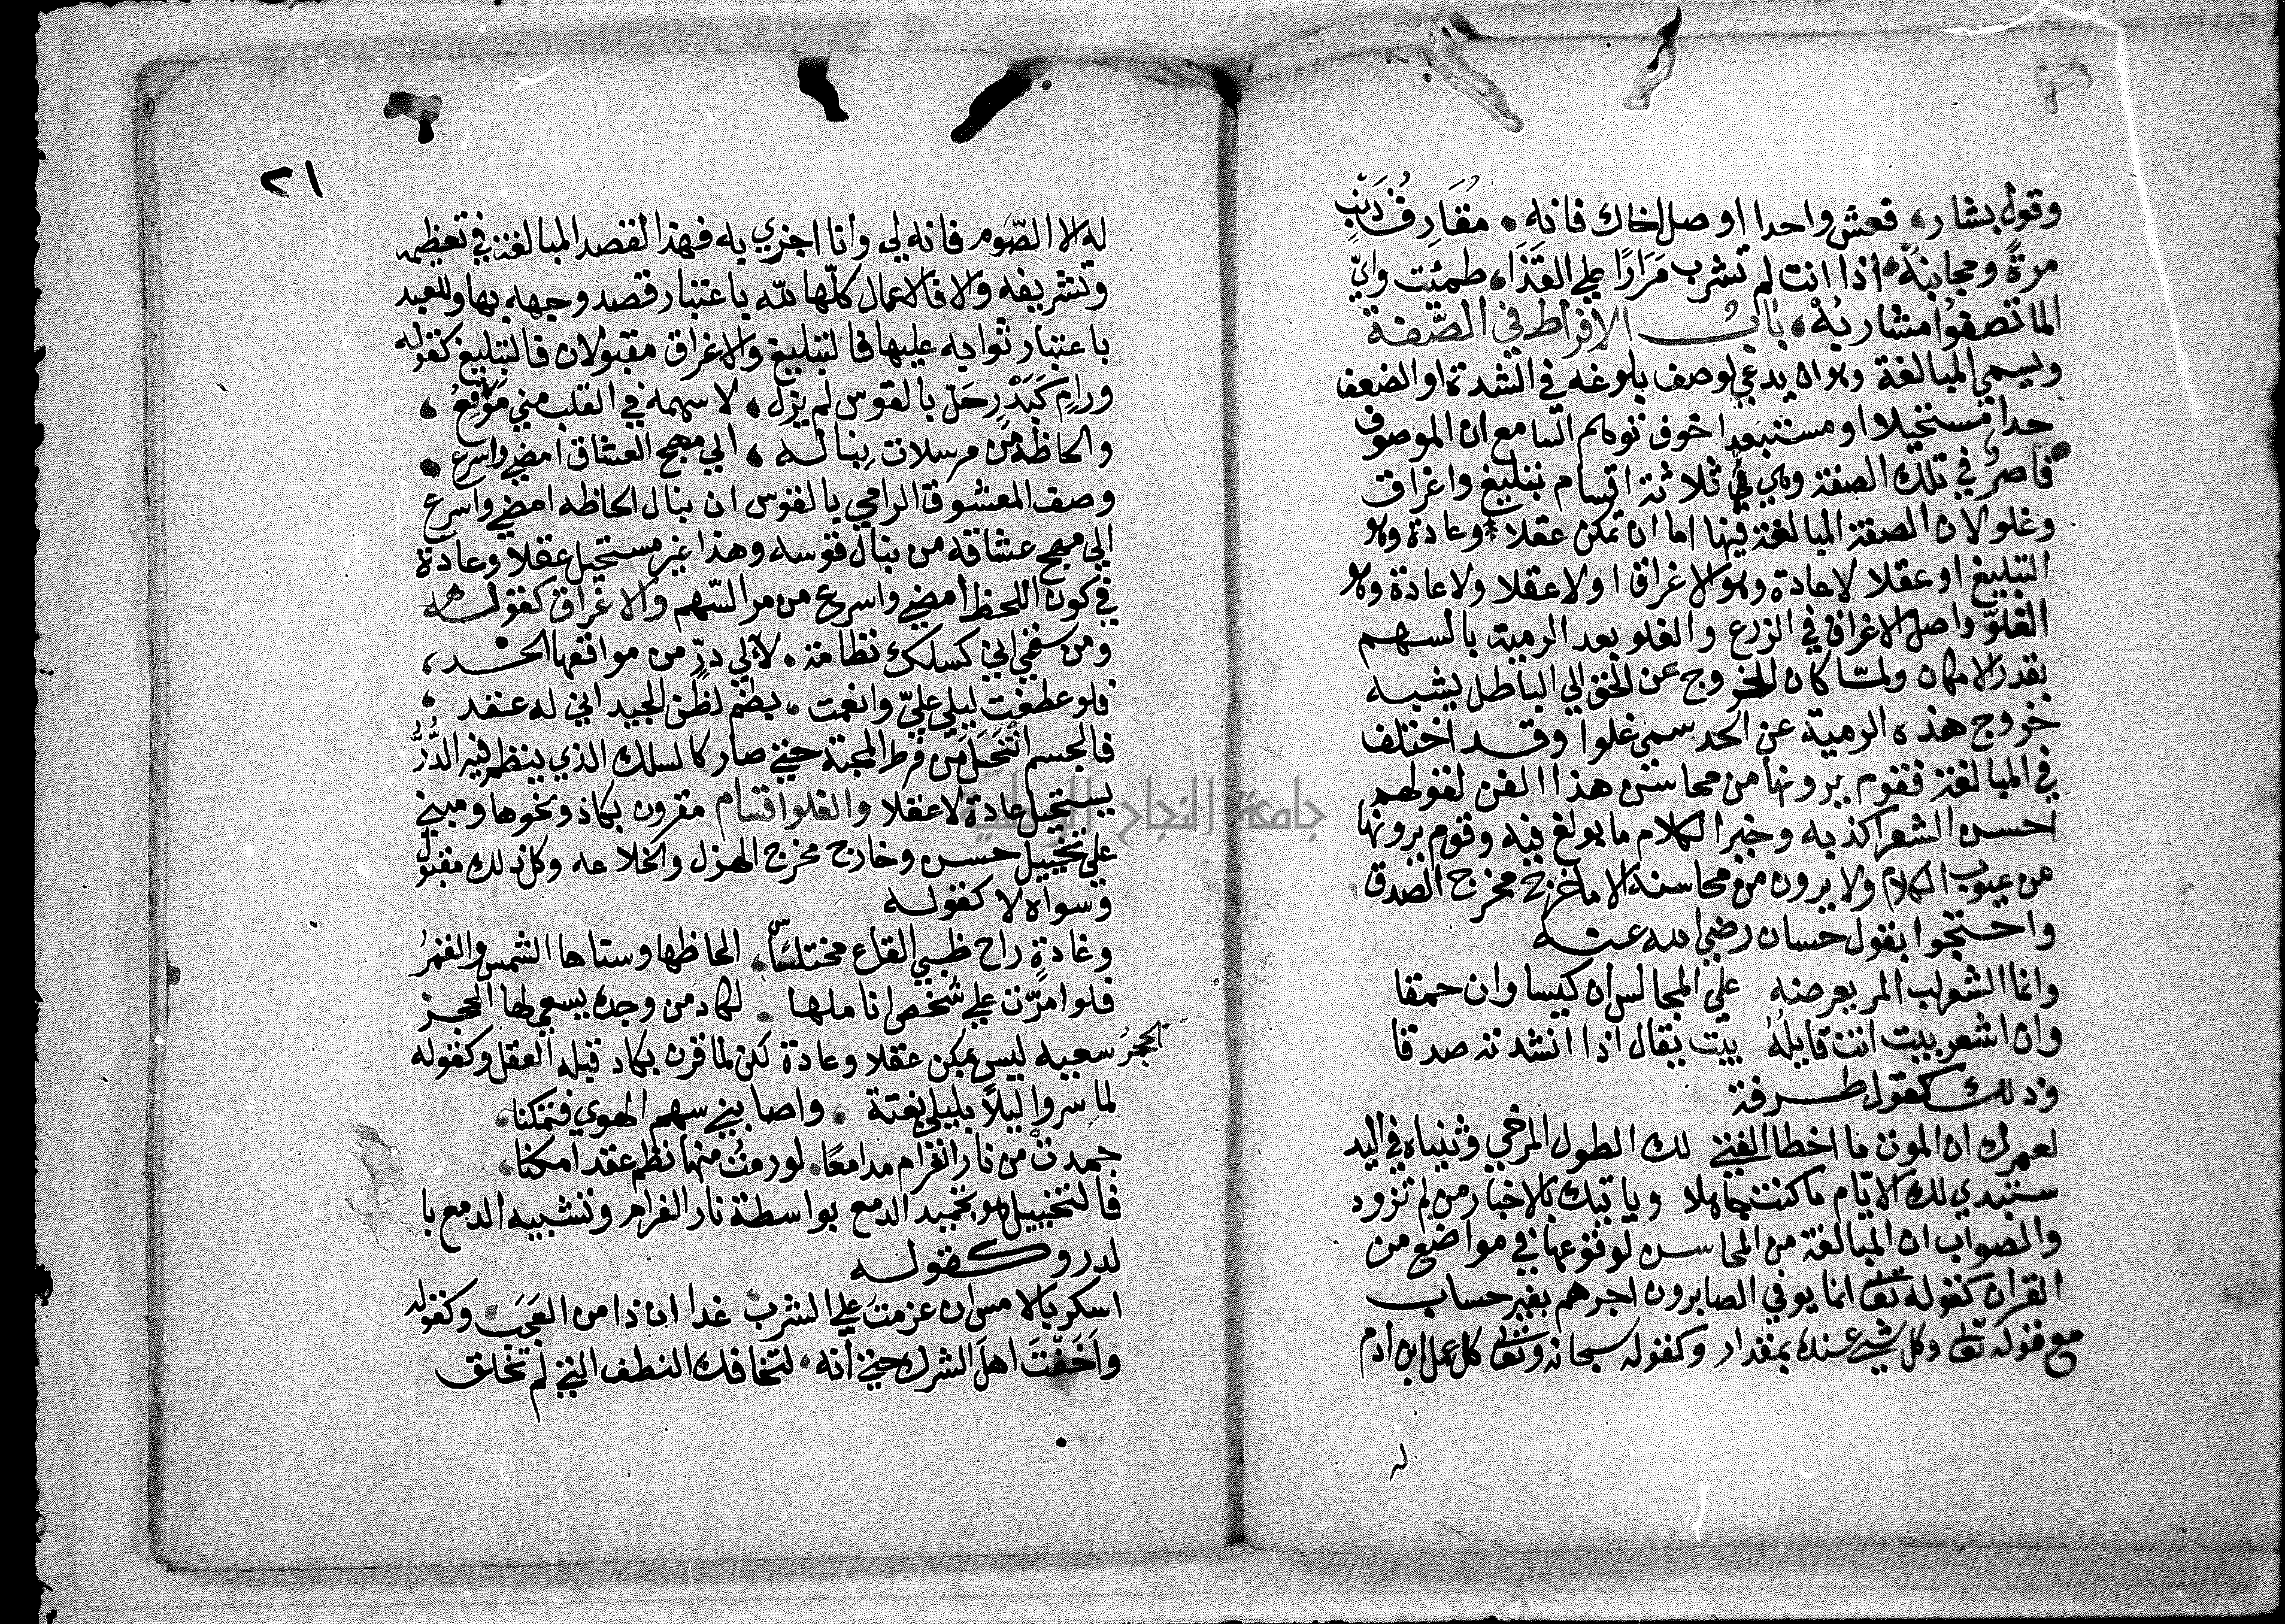 وقول بشار، فعش واحدا او صل اخاك فانه، مقارف ذنب
مرة ومجانبه، اذا انت لم تشرب مرارا على القذا، ظمئت واي
الما تصفوا مشاربه، باب الافراط في الصفة
ويسمى المبالغة وهو ان يدعي لوصف بلوغه في الشدة او الضعف
حدا مستحيلا او مستبعدا خوف توهم السامع ان الموصوف
قاصر في تلك الصفة وهي في ثلاثة اقسام تبليغ واغراق
وغلو لان الصفة المبالغة فيها اما ان تمكن عقلا وعادة وهو
التبليغ او عقلا لا عادة وهو الاغراق او لا عقلا ولا عادة وهو
الغلو واصل الاغراق في الزرع والغلو بعد الرمية بالسهم
بقدر الامكان ولما كان الخروج عن الحق الي الباطل يشبه
خروج هذه الرمية عن الحد سمي غلوا وقد اختلف
في المبالغة فقوم يرونها من محاسن هذا الفن لقولهم
احسن الشعر اكذبه وخير الكلام ما بولغ فيه وقوم يرونها
من عيوب الكلام ولا يرون من محاسنه الا ما خرج مخرج الصدق
واحتجوا بقول حسان رضي الله عنه
وانما الشعر لب المر يعرضه علي المجالس ان كيسا وان حمقا
وان اشعر بيت انت قايله بيت يقال اذا انشدته صدقا
وذلك كقول طرفة
لعمرك ان الموت ما اخطا الفتي لك الطول المرخي وثنياه في اليد
ستبدي لك الايام ما كنت جاهلا وياتيك بالاخبار من لم تزود
والصواب ان المبالغة من المحاسن لوقوعها في مواضع من
القران كقوله تعالى انما يوفي الصابرون اجرهم بغير حساب
مع قوله تعالى وكل شي عنده بمقدار وكقوله سبحانه وتعالى كل عمل ابن ادم
له
٢١
له الا الصوم فانه لي وانا اجزي به فهذا القصد المبالغة في تعظيمه
وتشريفه والا فالاعمال كلها لله باعتبار قصد وجهه بها وللعبد
باعتبار ثوابه عليها فالتبليغ والاغراق مقبولان فالتبليغ كقوله
ورام كبدر حل بالقوس لم يزل، لاسهمه في القلب مني مواقع،
والحاظه من مرسلات نباله، الي مهج العشاق امضي واسرع،
وصف المعشوق الرامي بالقوس ان نبال الحاظه امضي واسرع
الي مهج عشاقه من نبال قوسه وهذا غير مستحيل عقلا وعادة
في كون اللحظ امضي واسرع من مر السهم والاغراق كقوله
ومن سقمي اني كسلك نظامة، لآلي در من مواقعها الخد،
فلو عطفت ليلي علي وانعمت، بضم لظن الجيد اني له عقد،
فالجسم انتحل من فرط المحبة حتي صار كالسلك الذي ينظم فيه الدر
يستحيل عادة لا عقلا والغلو اقسام مقرون بكاد ونحوها ومبني
علي تخييل حسن وخارج مخرج الهزل والخلاعه وكل ذلك مقبول
وسواه لا كقوله
وغادة راح ظبي القاع مختلسا، الحاظها وسناها الشمس والقمر
فلو امرت علي شخص اناملها، لكاد من وجده يسعي لها الحجر
الحجر سعيه ليس يمكن عقلا وعادة لكن لما قرن بكاد قبله العقل وكقوله
لما سروا ليلا بليلي بغتة، واصابني سهم الهوي فتمكنا،
جمدت من نار الغرام مدامعا، لو رمت منها نظم عقد امكنا،
فالتخييل هو تجميد الدمع بواسطة نار الغرام وتشبيه الدمع با
لدر وكقوله
اسكر بالامس ان عزمت على الشرب غدا ان ذا من العجب، وكقوله
واخفت اهل الشرك حتي انه، لتخافك النطف التي لم تخلق
جامعة النجاح الوطنية